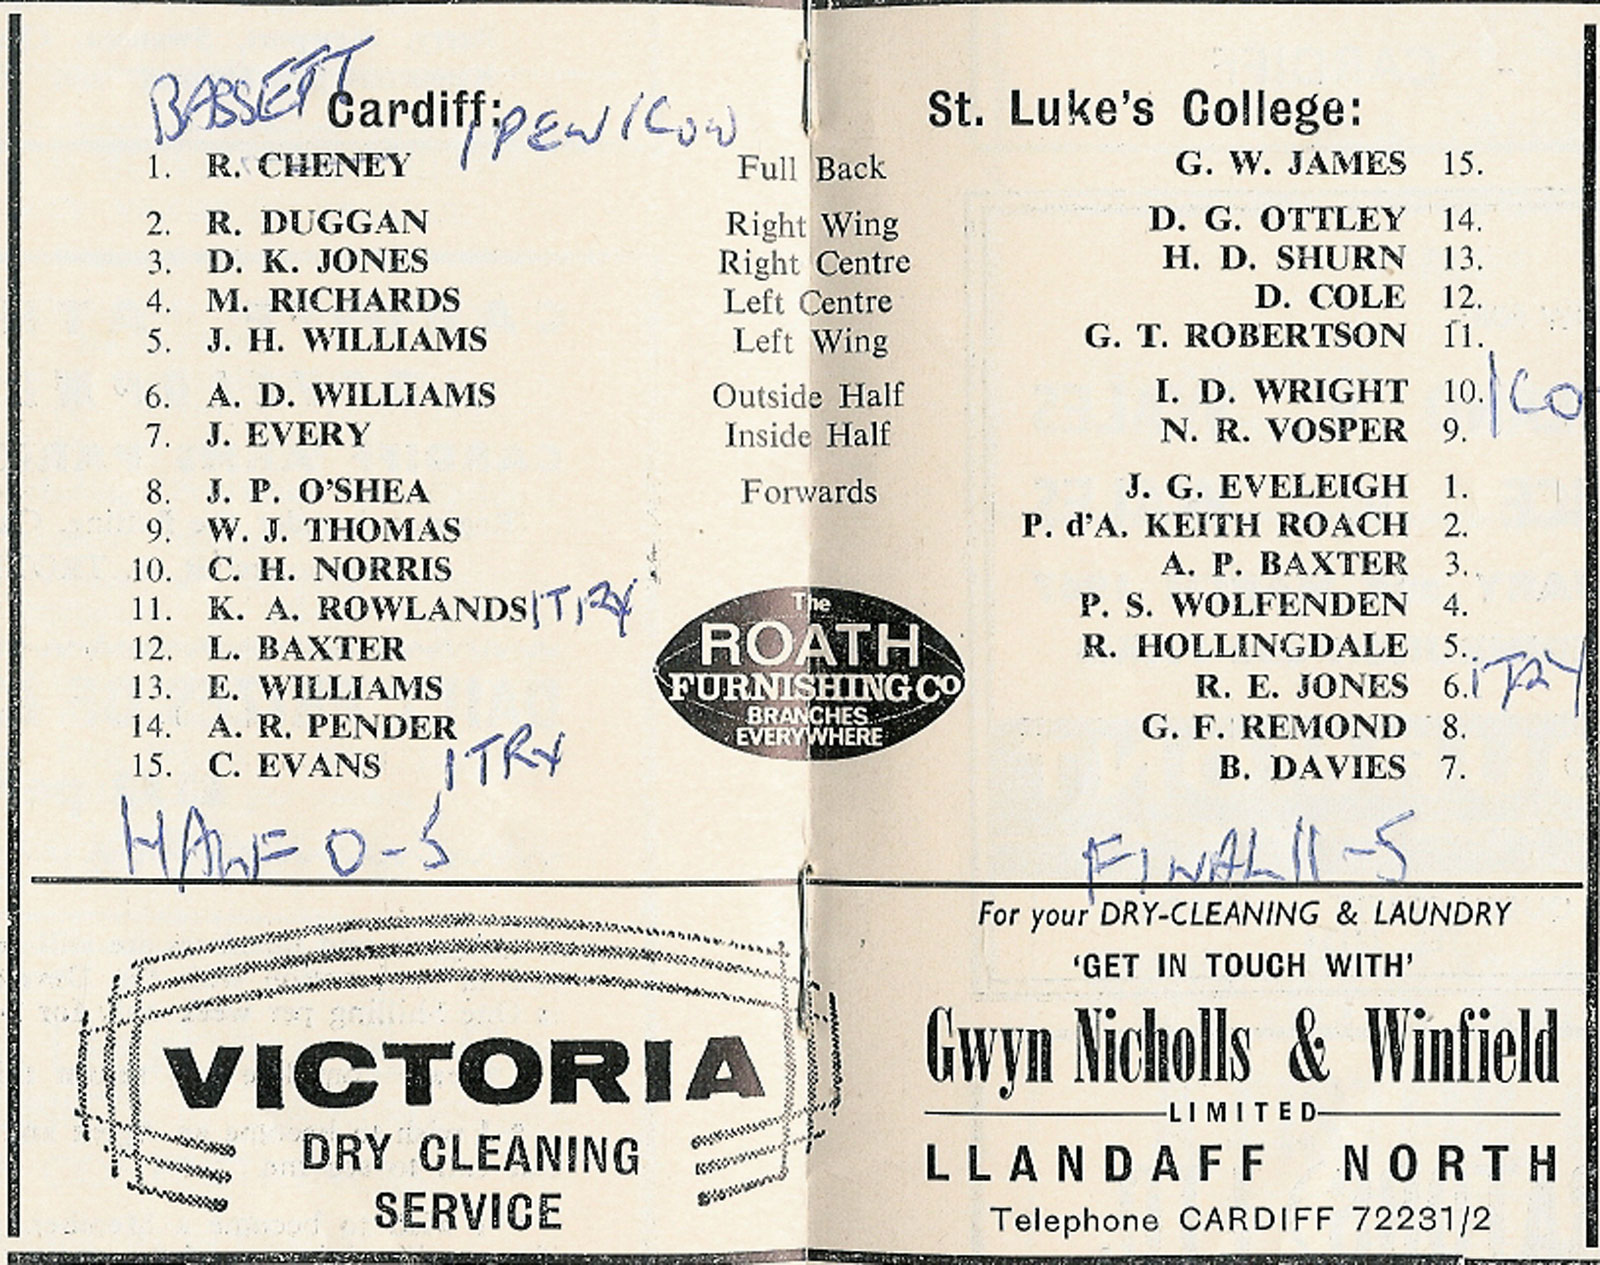 BASSETT
Cardiff:
1 PEN 1 CON
St. Luke's College:
1. R. CHENEY Full Back G. W. JAMES 15.
2. R. DUGGAN Right Wing D. G. OTTLEY 14.
3. D. K. JONES Right Centre H. D. SHURN 13.
4. M. RICHARDS Left Centre D. COLE 12.
5. J. H. WILLIAMS Left Wing G. T. ROBERTSON 11.
6. A. D. WILLIAMS Outside Half I. D. WRIGHT 10. 1 CO
7. J. EVERY Inside Half N. R. VOSPER 9.
8. J. P. O'SHEA Forwards J. G. EVELEIGH 1.
9. W. J. THOMAS P. d'A. KEITH ROACH 2.
10. C. H. NORRIS A. P. BAXTER 3.
11. K. A. ROWLANDS 1 TRY P. S. WOLFENDEN 4.
12. L. BAXTER R. HOLLINGDALE 5.
13. E. WILLIAMS R. E. JONES 6. 1 TRY
14. A. R. PENDER G. F. REMOND 8.
15. C. EVANS 1 TRY B. DAVIES 7.
The
ROATH
FURNISHING CO
BRANCHES
EVERYWHERE
HALF 0-5
FINAL 11-5
VICTORIA
DRY CLEANING
SERVICE
For your DRY-CLEANING & LAUNDRY
'GET IN TOUCH WITH'
Gwyn Nicholls & Winfield
LIMITED
LLANDAFF NORTH
Telephone CARDIFF 72231/2